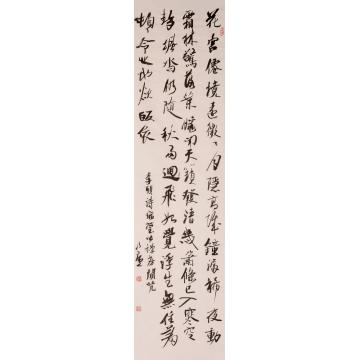 花宮僊梵遠微々月隱高城鐘漏稀夜動
霜林驚落葉曉聞天籟發清機蕭條已入寒空
静颯沓仍随秋雨飛始覺浮生無住著
頓令心地欲皈依
李頎詩宿瑩公禅房聞梵